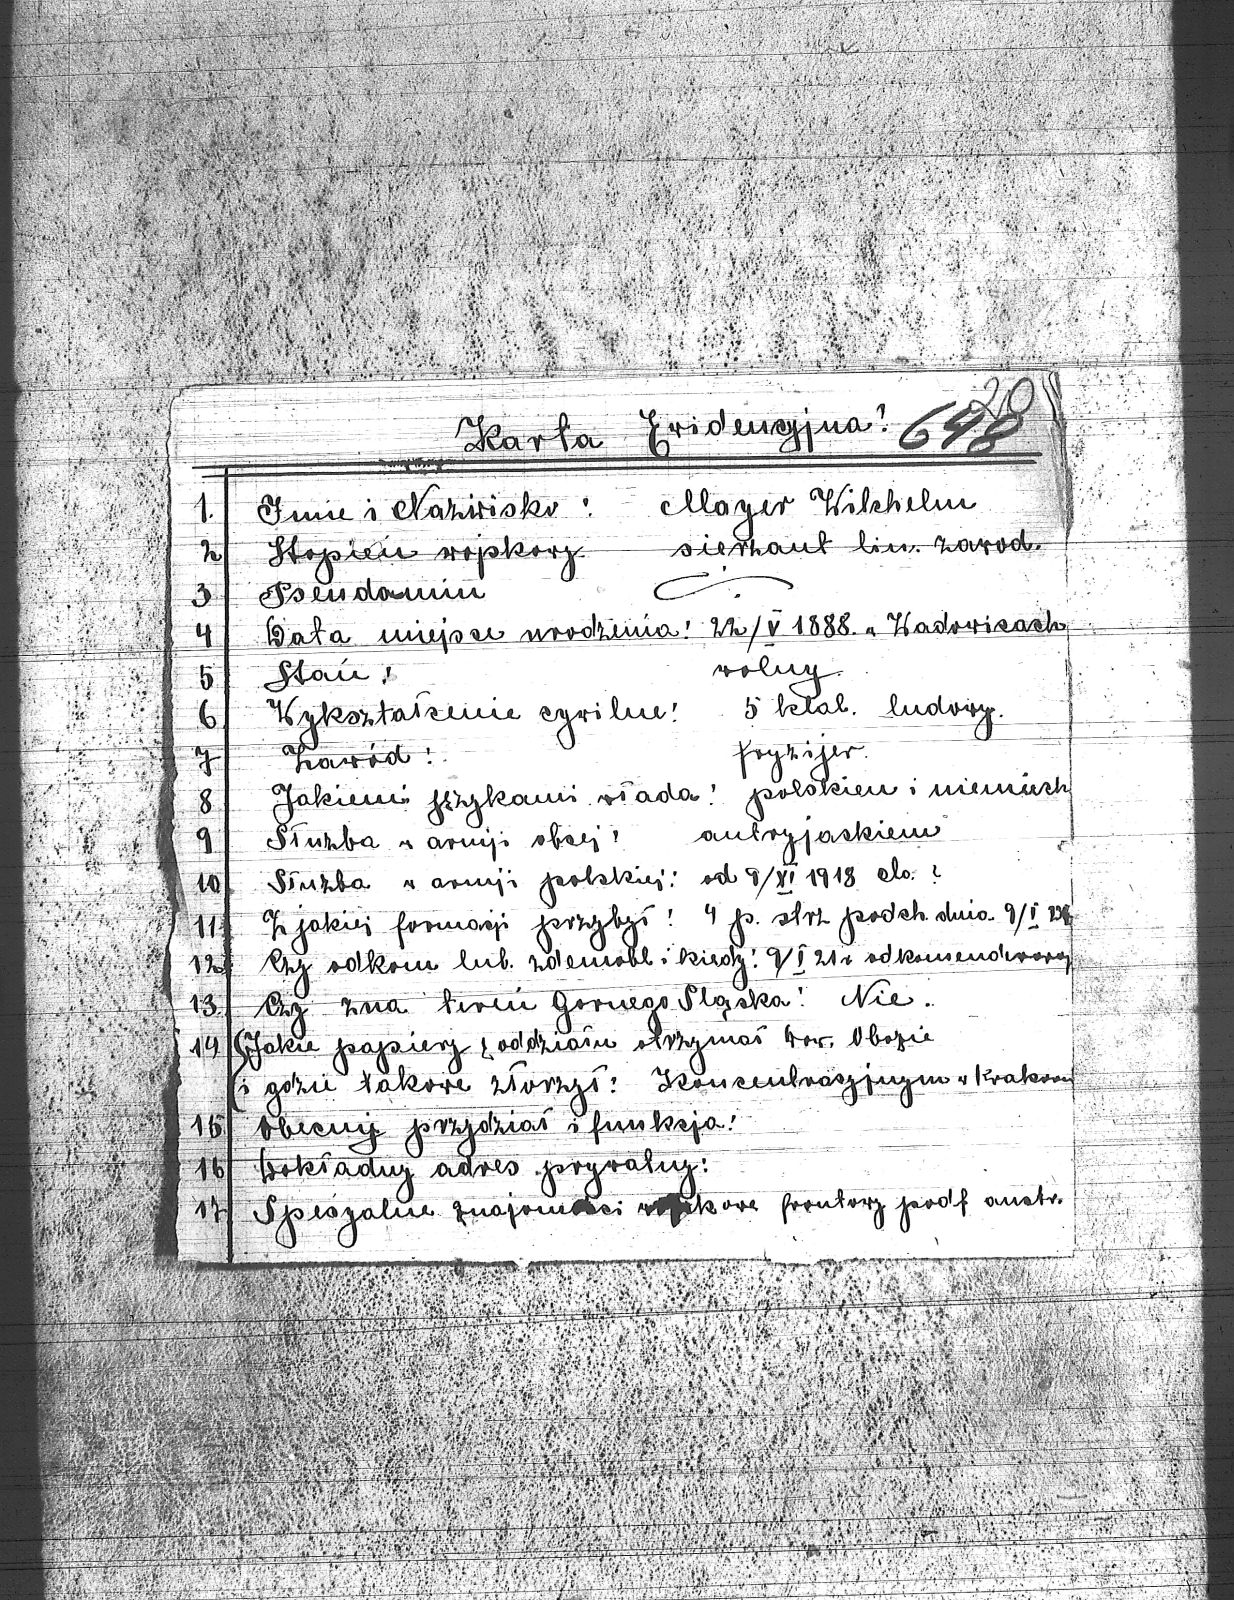 20
Karta Ewidencyjna! 648
1. Imie i Nazwisko! Mayer Wilhelm
2 Stopień wojskowy sierżant lin. zawod.
3 Pseudamin
4 Data miejsce urodzenia! 22/V 1888. w Wadowicach
5 Stan! wolny.
6 Wykształcenie cywilne! 5 klas. ludowy.
7 Zawód! fryzijer.
8 Jakiemi językami włada! polskiem i niemiech
9 Służba w armji obcej! austryjaskiem
10. Służba w armji polskiej! od 9/XI 1918 do. ?
11. Z jakiej formacji przybył! 4 p. strz podch. dnia 9/I
12. Czy odkom lub. zdemobl. i kiedy! 9/I 21 r odkomenderowany
13. Czy zna tereń Gornego Sląska! Nie.
14 Jakie papiery z oddziału otrzymał Dow. Obozie
i gdzie takowe złorzył! Koncentracyjnym w Krakowie
15 Obecnij przydział i funkcja!
16 Dokładny adres prywatny!
17 Specyalne znajomości wojskowe frontowy podf austr.